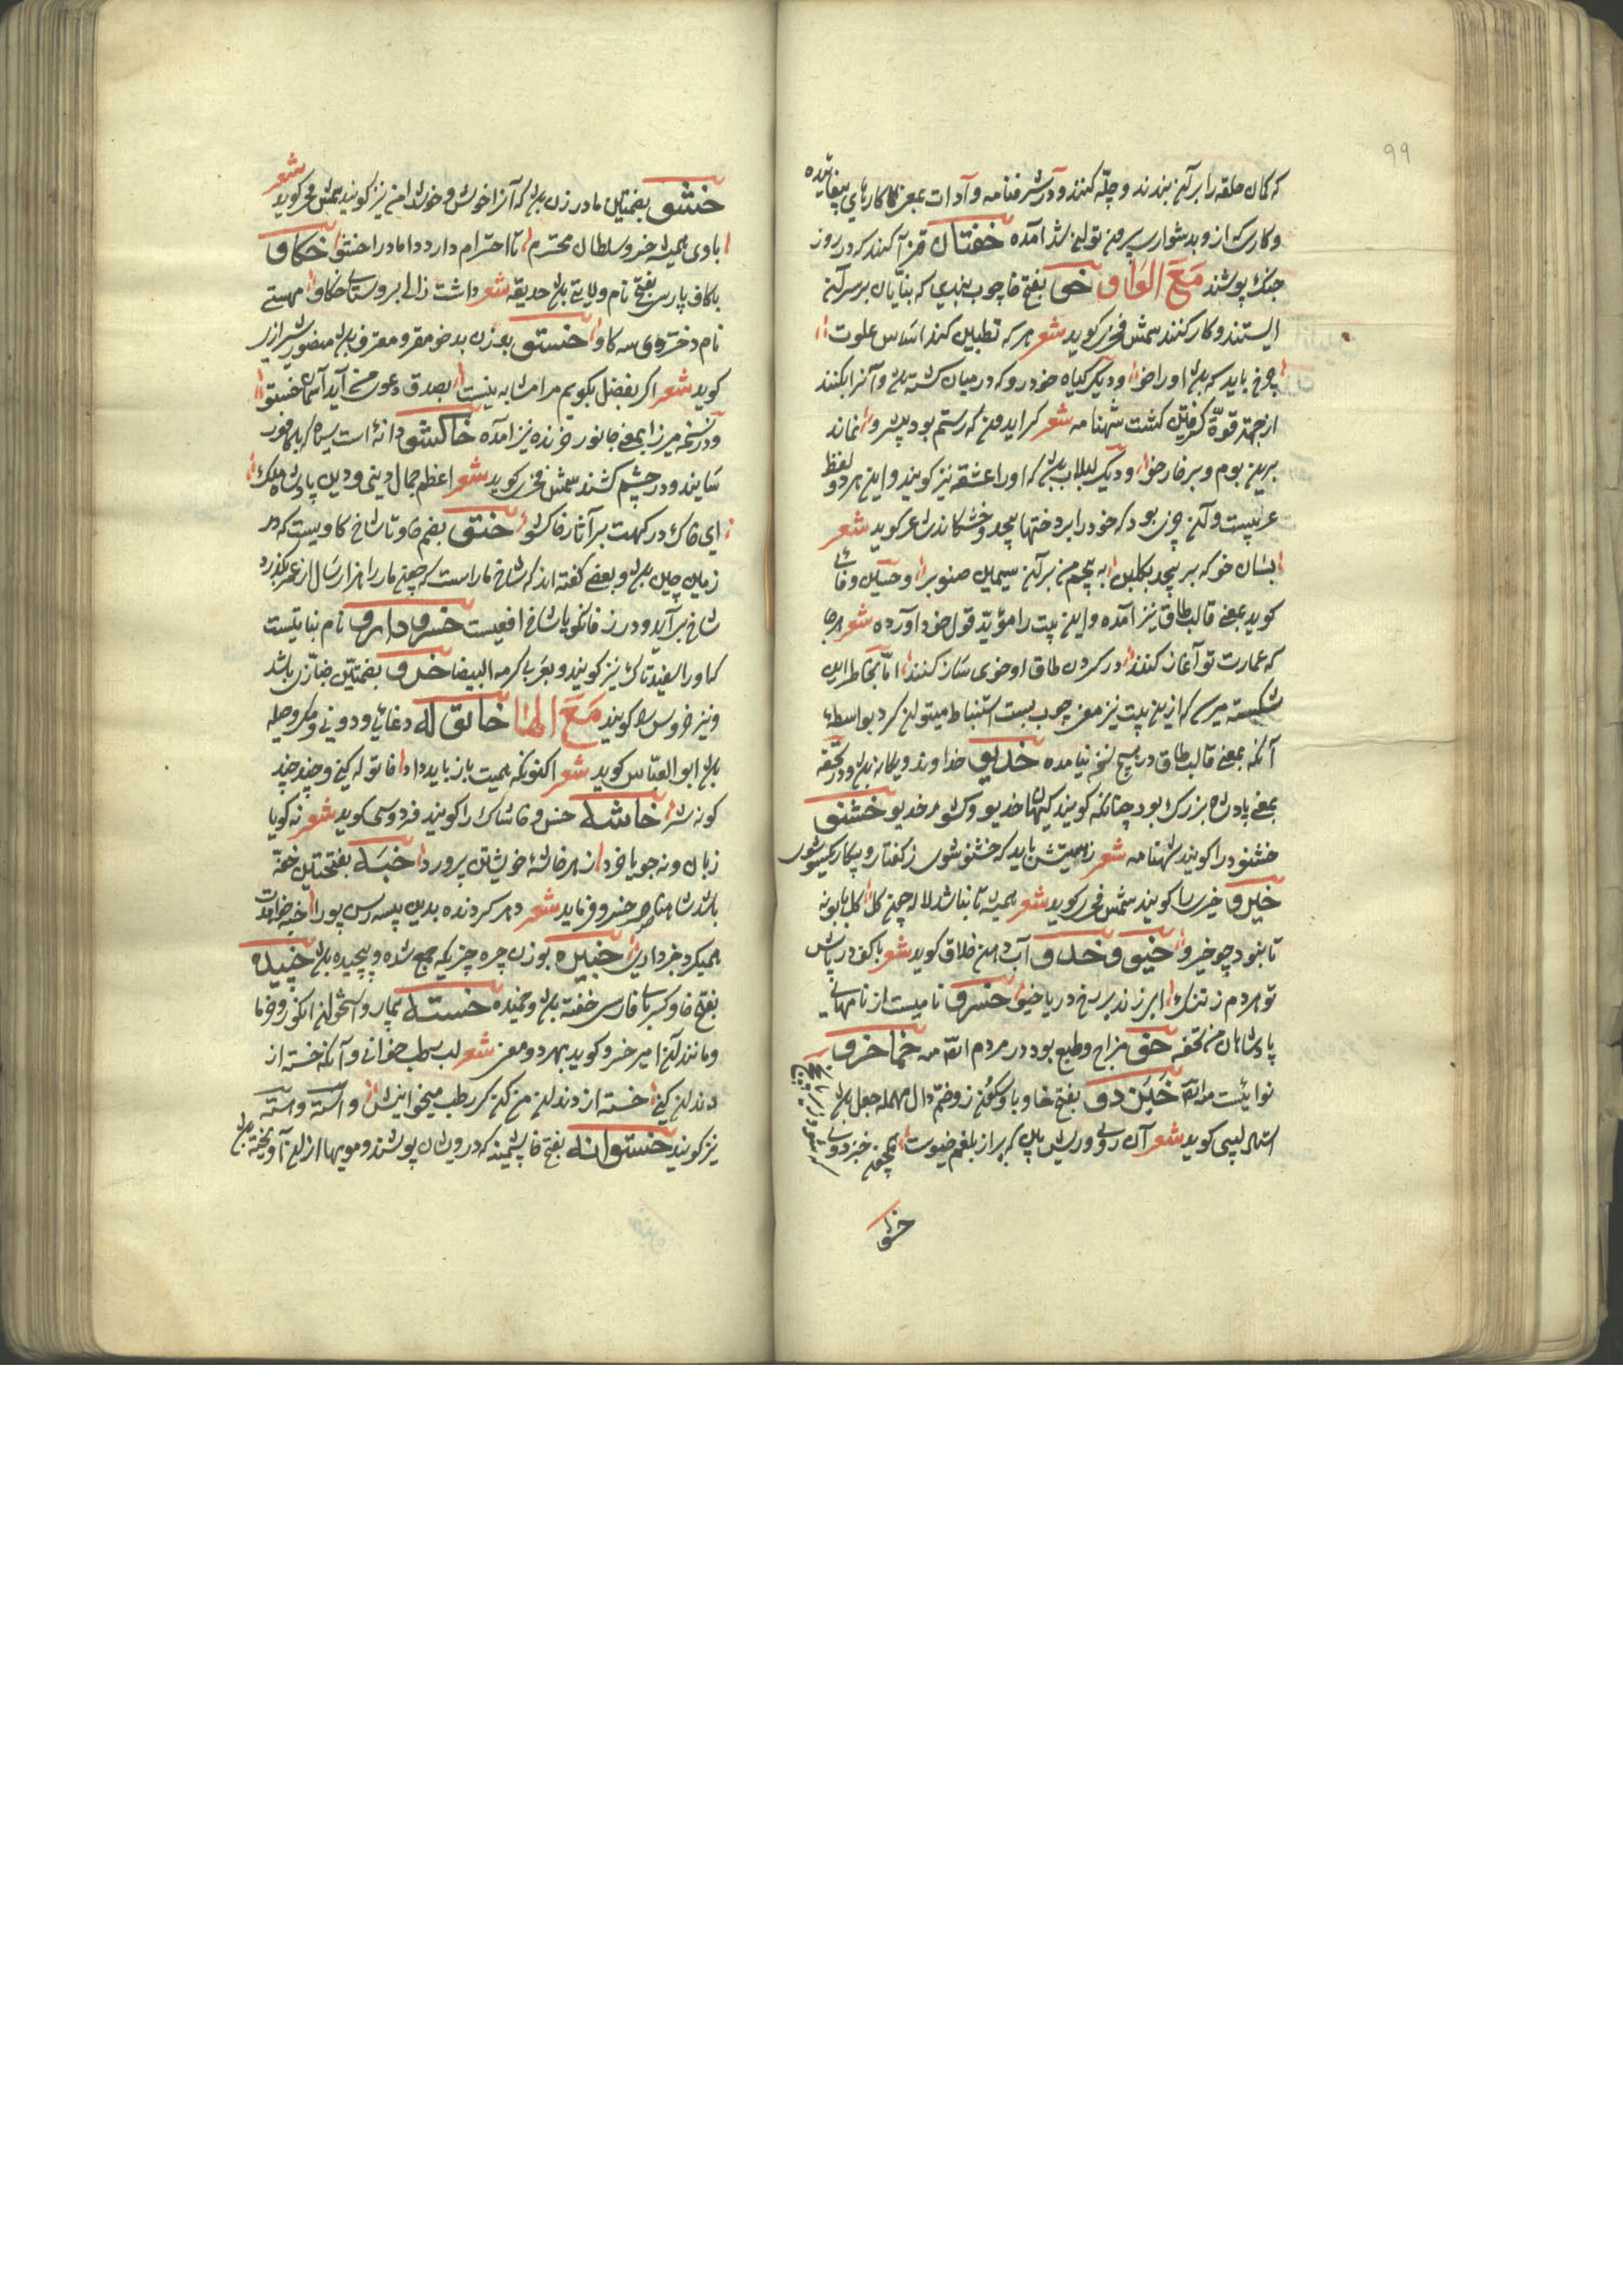 که کمان حلقه را بر آن بندند و چلّه کنند و در شرفنامه و آدات بمعنی کارهای بیفایده
و کاری که از وی بدشواری بیرون توان شد آمده خفتان قزاکند که در روز
جنک پوشند مَعَ الوَاو خو بفتح خا چوب بندی که بنایان بر سر آن
ایستند و کار کنند شمش فخری کوید شعر هر که تطیین کند اساس علوت
چرخ باید که باشد او را خو و دیکر کیاه خودرو که در میان کشت باشد و آنرا بکنند
از جهة قوّة کرفتن کشت شهنامه شعر کر ایدون که رستم بود پیش رو نماند
برین بوم و بر خار خو و دیکر لبلاب باشد که او را عشقه نیز کویند و این هر دو لفظ
عربیست و آن چیزی بود که خود را بر درختها پیچد و خشکاند شاعر کوید شعر
بسان خو که بر پیچد بکلبن به پیچم من بر آن سیمین صنوبر و حسین وفائی
کوید بمعنی قالب طاق نیز آمده و این بیت را مؤیّد قول خود آورده شعر هر جا
که عمارت تو آغاز کنند در کردن طاق او خوی ساز کنند امّا بخاطر این
شکسته میرسد که ازین بیت نیز معنی چوب بست استنباط میتوان کرد بواسطهٔ
آنکه بمعنی قالب طاق در هیچ نسخه نیامده خدیو خداوند و یکانه باشد و در تحفه
بمعنی پادشاه بزرک بود چنانکه کویند کیهان خدیو و کشور خدیو خشنو
خشنود را کویند شهنامه شعر زهستیش باید که خشنو شوی ز کفتار و پیکار یکسو شوی
خیرو خیری را کویند شمش فخری کوید شعر همیشه تا نباشد لاله چون کل کل بابونه
تا نبود چو خیرو خیو و خدو آب دهن خلاق کوید شعر با کف در پاش
تو هر دم ز تنک ابر زند بر رخ دریا خیو خسرو نامیست از نامهای
پادشاهان من تحفه خو مزاج و طبع بود در مردم انّهٰ منه خما خرو
نوائیست من انّهٰ خَبَن دو بفتح خا و با و سکون ز و ضم دال مهمله جعل باشد
استاد لبیبی کوید شعر آن روی و ریش بین که پر از بلغم خیوست همچون خبزدوی
خشو
خشو بضمتین مادر زن باشد که آنرا خوش و خوشدامن نیز کویند شمش فخر کوید شعر
بادی همیشه خسرو سلطان محترم تا احترام دارد داماد را خشو خکاو
بکاف پارسی بفتح نام ولایتی باشد حدیقه شعر داشت زالی بروستای خکاو مهستی
نام دختری و سه کاو خستو بوزن بدخو مقر و معترف باشد منصور شیرازی
کوید شعر اکر بفضل بکویم مرا مشابه نیست بصدق دعوی من آید آسمان خستو
و در نسخهٔ میرزا بمعنی جانور خزنده نیز آمده خاکشو دانهٔ است سیاه که با کافور
سایند و در چشم کشند شمش فخری کوید شعر اعظم جمال دینی و دین پادشاه ملک
ای خاک درکهت بر آثار خاکشو ختو بضم خا و تا شاخ کاویست که در
زمین چین باشد و بعضی کفته اند که شاخ مار است که چون مار را هزار سال از عمر بکذرد
شاخ بر آید و در زفانکویا شاخ افعیست خسرو دارو نام نباتیست
که او را سفیدتاک نیز کویند و بعربی کرمه البیضا خرو بضمتین خبّازی باشد
و نیز خروس را کویند مَعَ الها خاتو له دغایی و دونی و مکر و حیله
باشد ابو العبّاس کوید شعر اکنونکه همیت باز باید داد خاتوله کنی و چند چند
کونه شر خاشه خس و خاشاک را کویند فردوسی کوید شعر نه کویا
زبان و نه جویا خرد ز هر خاشهٔ خویشتن پرورد خَبَه بفتحتین خفه
باشد شاه ناصر خسرو فرماید شعر
همیکرد خبیره بوزن چره چیزیکه جمع شده و پیچیده باشد خپیده
بفتح خا و کسر بای فارسی خفته باشد و خمیده خسته بیمار و استخوان انکور و خرما
و مانند آن امیر خسرو کوید بهر دو معنی شعر لب رطب خوانی و آنکه خسته از
دندان کنی خسته از دندان من کن کر رطب میخوانیش و استه و استه
نیز کویند خستوانه بفتح خا پشمینه که درویشان پوشند و مویها از آن آویخته باشد